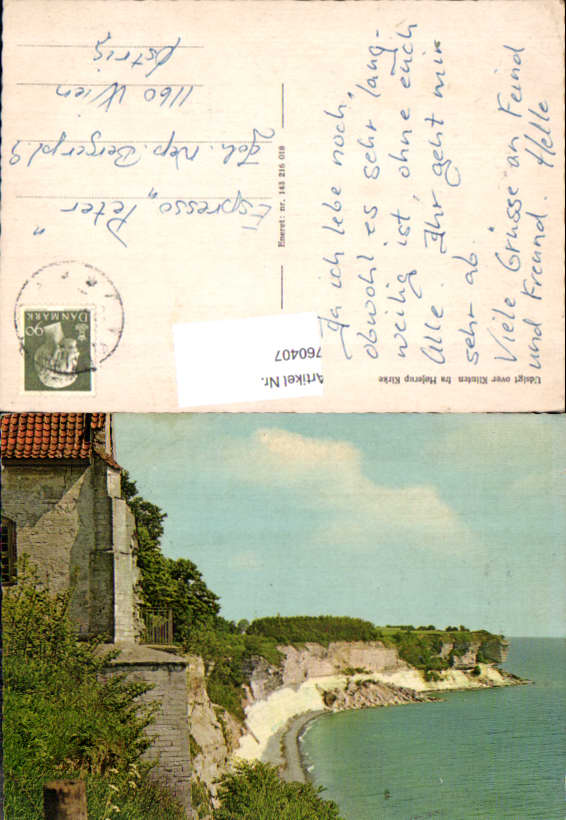 Ja ich lebe noch,
obwohl es sehr lang-
weilig ist, ohne euch
Alle. Ihr geht mir
sehr ab.
Viele Grüsse an Feind
und Freund. Helle
Udsigt over Klinten fra Højerup Kirke
Eneret: nr. 143 216 018
Espresso „Peter“
Joh. Nep. Bergerpl. 9
1160 Wien
Østrig
DANMARK
90
Artikel Nr.
760407